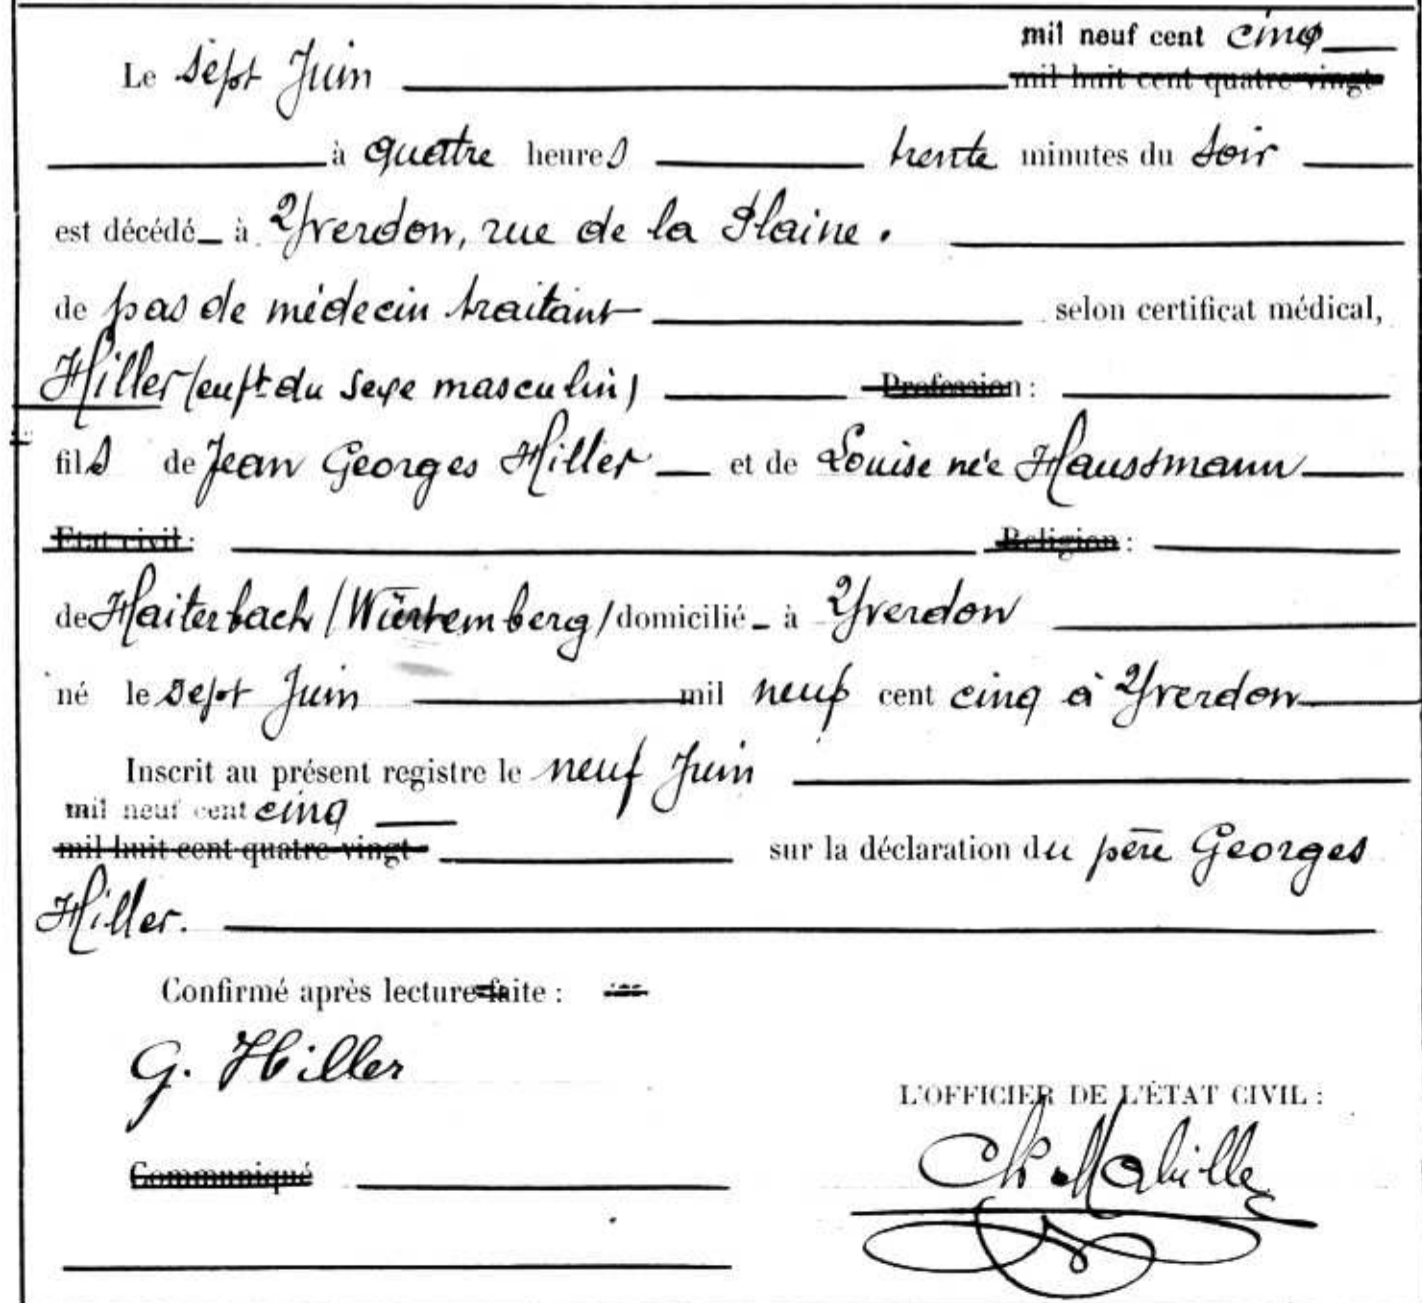 mil neuf cent cinq
Le sept Juin mil huit cent quatre-vingt
à quattre heures trente minutes du soir
est décédé à Yverdon, rue de la Plaine.
de pas de médecin traitant selon certificat médical,
Hiller (enft du sexe masculin) Profession :
fils de Jean Georges Hiller et de Louise née Haussmann
Etat civil : Religion :
de Haiterbach /Würtemberg/ domicilié à Yverdon
né le sept Juin mil neuf cent cinq à Yverdon
Inscrit au présent registre le neuf Juin
mil neuf cent cinq
mil huit cent quatre-vingt sur la déclaration du père Georges
Hiller.
Confirmé après lecture faite :
G. Hiller
L'OFFICIER DE L'ÉTAT CIVIL :
Ch. Mabille
Communiqué